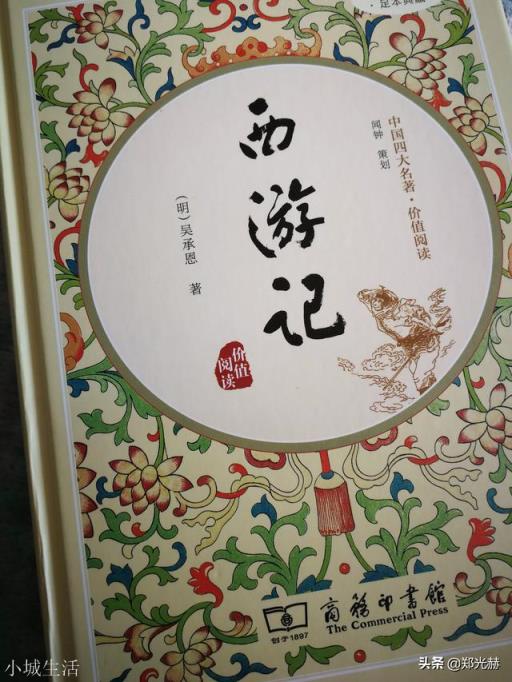 ·足本典藏
中国四大名著·价值阅读
闻钟 策划
西游记
(明)吴承恩 著
价值
阅读
商務印書館
The Commercial Press
创于1897
小城生活
头条 @郑光赫